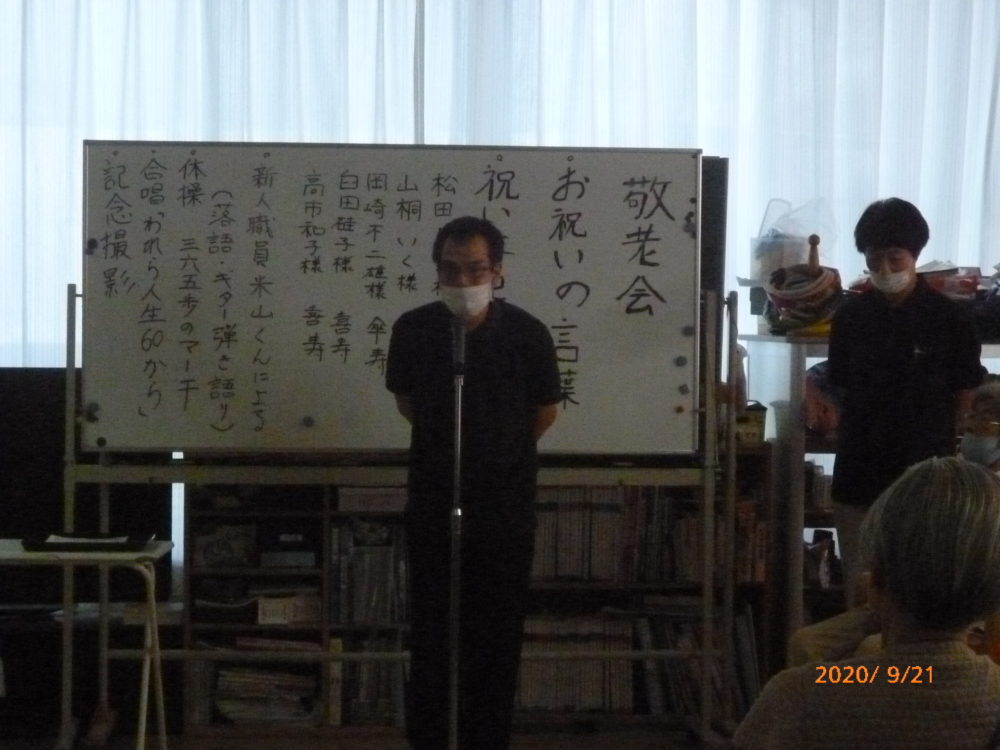 敬老会
・お祝いの言葉
・祝い
松田
山桐いく様
岡崎不二雄様 傘寿
臼田硅子様 喜寿
高市和子様 喜寿
・新人職員米山くんによる
(落語・ギター弾き語り)
・体操 三六五歩のマーチ
・合唱「われら人生60から」
・記念撮影
2020/ 9/21